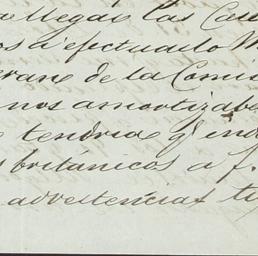 llegar las Cas
os á efectuarlo M
eran de la Comis
nos amortizab
tendria q̃ en
británicos a f.
advertencias ti